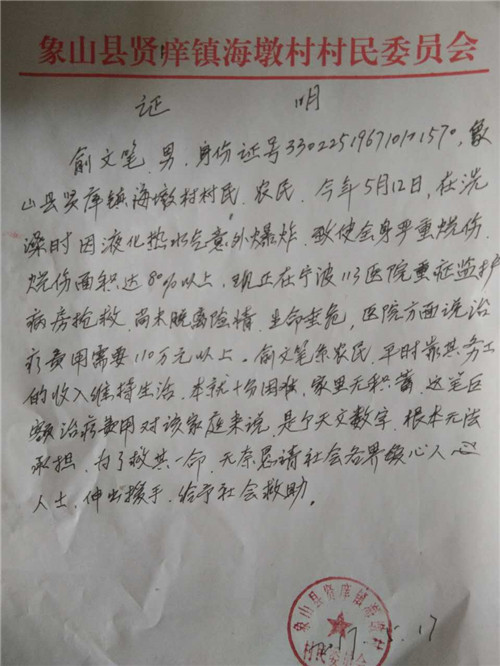 象山县贤庠镇海墩村村民委员会
证 明
俞文笔，男，身份证号330225196710101570，象
山县贤庠镇海墩村村民，农民，今年5月12日，在洗
澡时因液化热水气意外爆炸，致使全身严重烧伤，
烧伤面积达80%以上，现正在宁波113医院重症监护
病房抢救，尚未脱离险情，生命垂危，医院方面说治
疗费用需要110万元以上。俞文笔系农民，平时靠其务工
的收入维持生活，本就十分困难，家里无积蓄，这笔巨
额治疗费用对该家庭来说，是个天文数字，根本无法
承担，为了救其一命，无奈恳请社会各界暖心人
人士，伸出援手，给予社会救助。
象山县贤庠镇海墩村
村民委员会
17